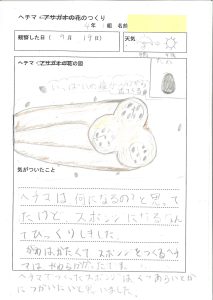 ヘチマ<アサガオの花のつくり
4年 組 名前
観察した日 ( 9月 19日)
天気
ヘチマ<アサガオの花の図
気がついたこと
ヘチマは何になるの?と思っ
てたけど、スポンジになるなんて
びっくりしました。
かわはかたくてスポンジをつくるヘチ
マはやわらかったです。
ヘチマでつくったスポンジは、くつあらいとか
につかいたいと思いました。